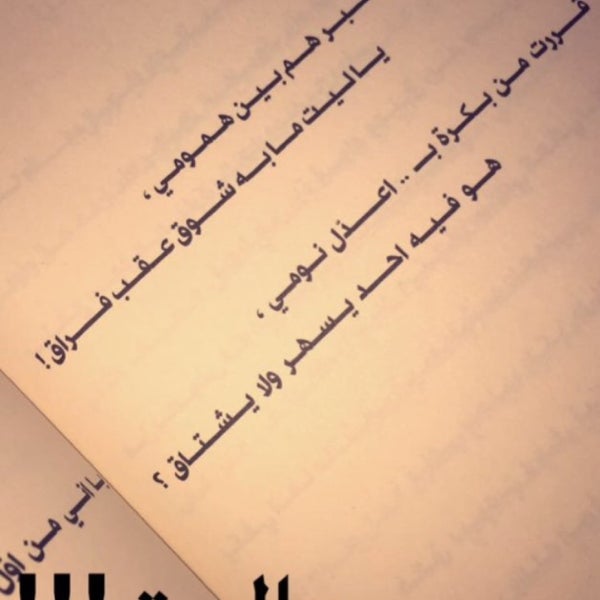 هم بين همومي،
ياليت مابه شوق عقب فراق!
قررت من بكرة بـ .. اعدّل نومي،
هو فيه احد يسهر ولا يشتاق؟
ياتي من اول